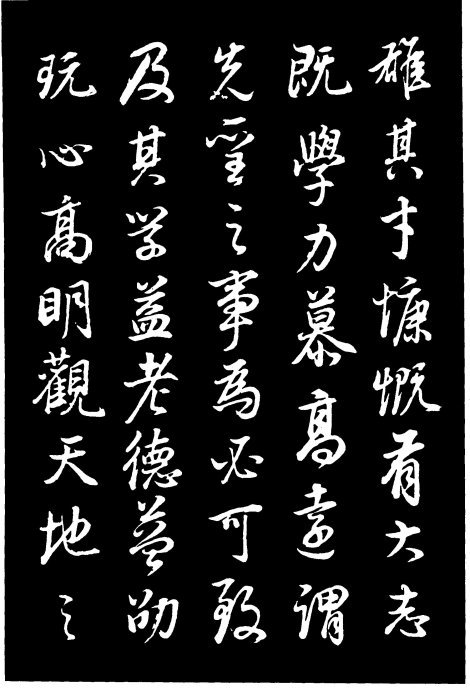 雄其才慷慨有大志
既學力慕高遠謂
先聖之事為必可致
及其學益老德益劭
玩心高明觀天地之